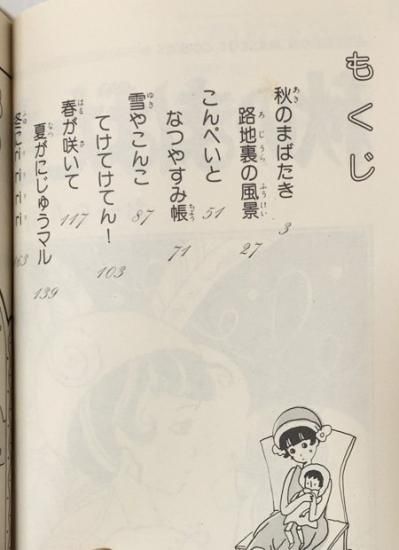 もくじ
秋のまばたき 3
路地裏の風景 27
こんぺいと 51
なつやすみ帳 71
雪やこんこ 87
てけてけてん! 103
春が咲いて 117
夏がにじゅうマル 139
163